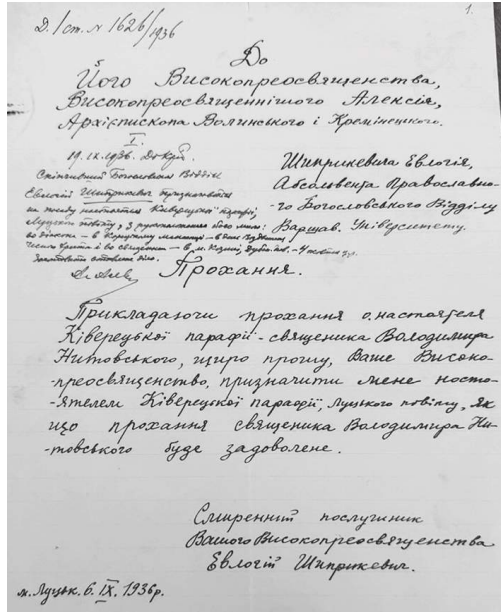 1.
Д./ст. № 1626/1936
До
Його Високопреосвященства,
Високопреосвященнішого Алексія,
Архієпископа Волинського і Кремінецького.
I.
19.IX.1936. До Кҙ.
Скінчивший Богословський Відділ
Евлогій Шприкевич призначається
на посаду настоятеля Ківерецької парафії,
Луцького повіту, з рукоположенням його мною:
во діякона – в
числа вротів й во священика – в м. Козині, Дубен. пов. – 4 жовтня ц.р.
Заготовити ставлене діло.
Шиприкевича Евлогія,
Абсольвента Православно-
го Богословського Відділу
Варшав. Університету.
Прохання.
Прикладаючи прохання о. настоятеля
Ківерецької парафії - священика Володимира
Нитовського, щиро прошу, Ваше Високо-
-преосвященство, призначити мене насто-
-ятелем Ківерецької парафії, Луцького повіту, як
що прохання священика Володимира Ни-
-товського буде задоволене.
Смиренний послушник
Вашого Високопреосвященства
Евлогій Шиприкевич.
м. Луцьк. 6.IX.1936р.